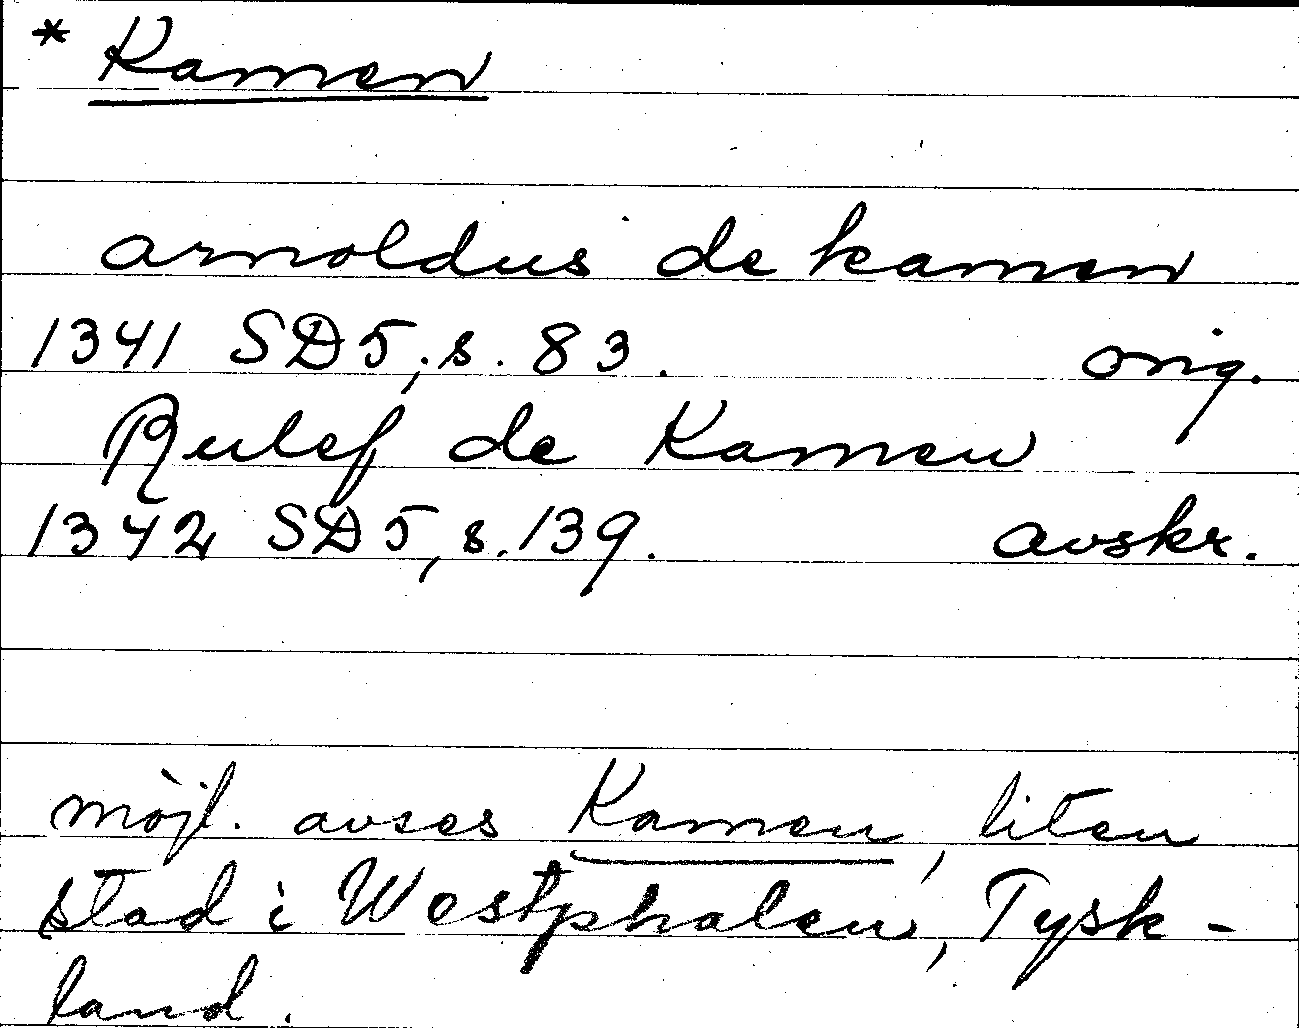 * Kamen
arnoldus de kamen
1341 SD5, s. 83. orig.
Rulef de Kamen
1342 SD5, s. 139. avskr.
möjl. avses Kamen, liten
stad i Westphalen, Tysk-
land.